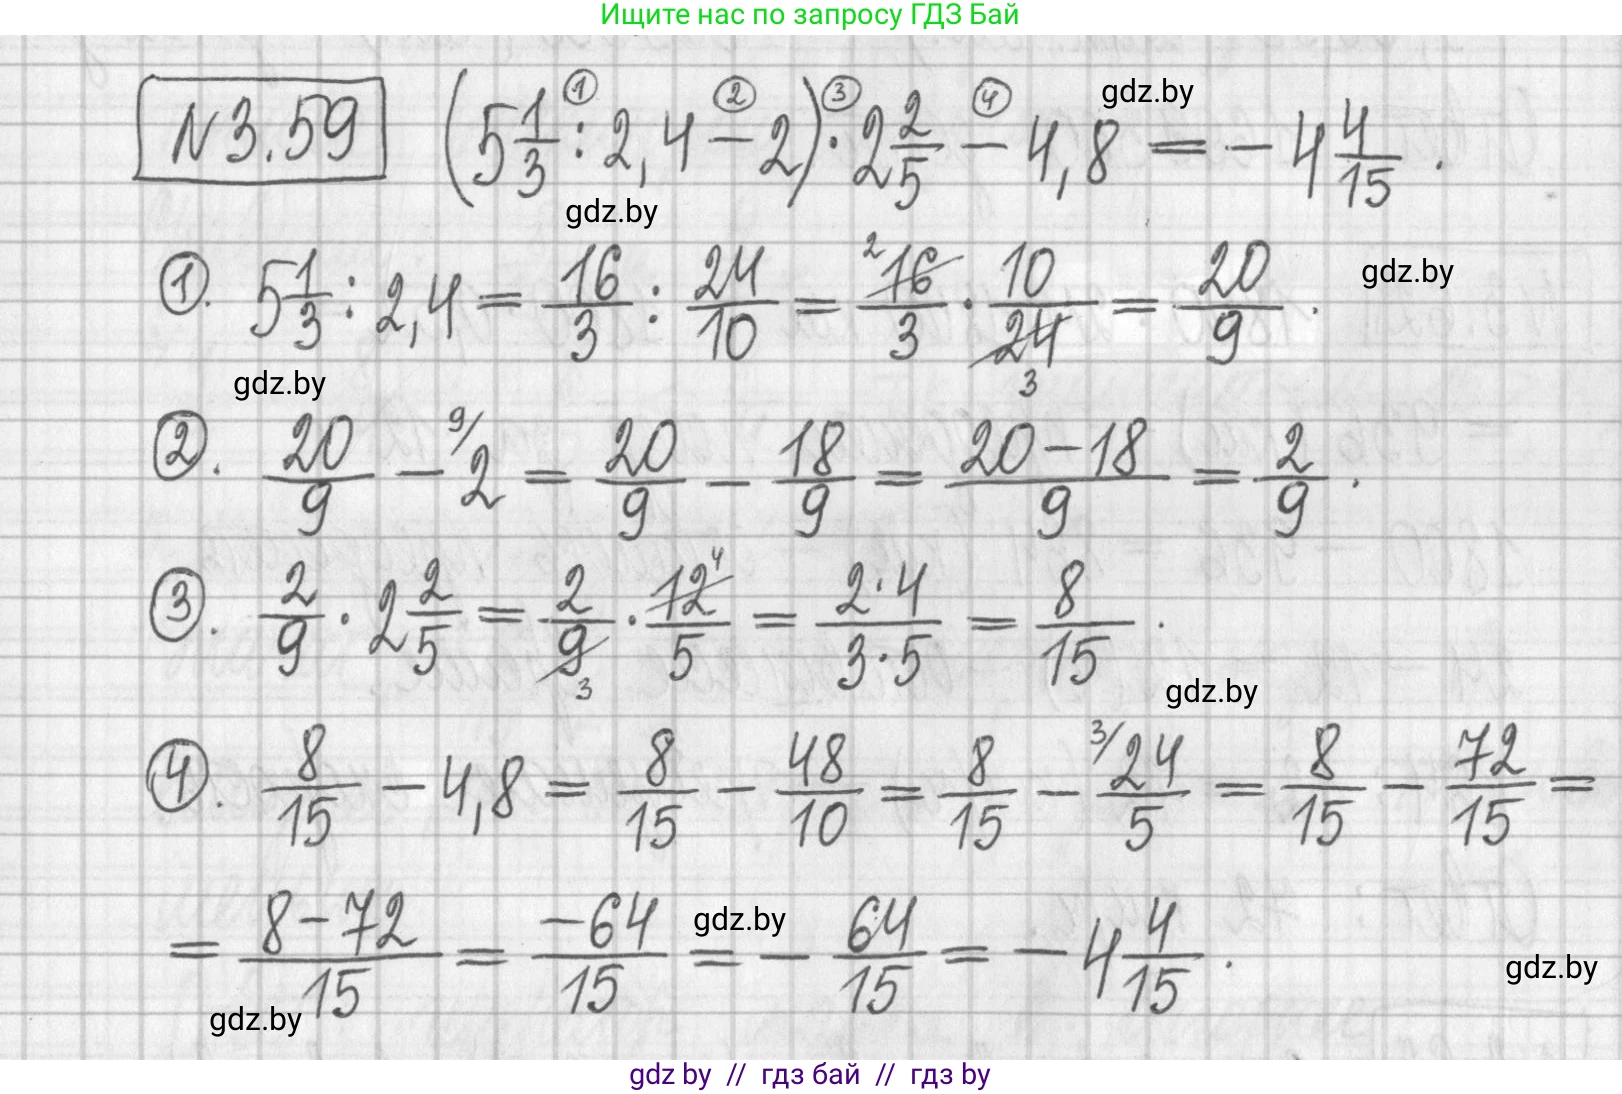 Ищите нас по запросу ГДЗ Бай
N 3.59 (5 1/3 : 2,4 − 2) · 2 2/5 − 4,8 = − 4 4/15 .
① ② ③ ④
gdz.by
gdz.by
①. 5 1/3 : 2,4 = 16/3 : 24/10 = 16/3 · 10/24 = 20/9 .
2 3
gdz.by
gdz.by
②. 20/9 − 9/ 2 = 20/9 − 18/9 = (20 − 18)/9 = 2/9 .
③. 2/9 · 2 2/5 = 2/9 · 12/5 = (2·4)/(3·5) = 8/15 .
4 3
gdz.by
④. 8/15 − 4,8 = 8/15 − 48/10 = 8/15 − 3/ 24/5 = 8/15 − 72/15 =
= (8 − 72)/15 = −64/15 = − 64/15 = − 4 4/15 .
gdz.by
gdz.by
gdz.by
gdz by // гдз бай // гдз by